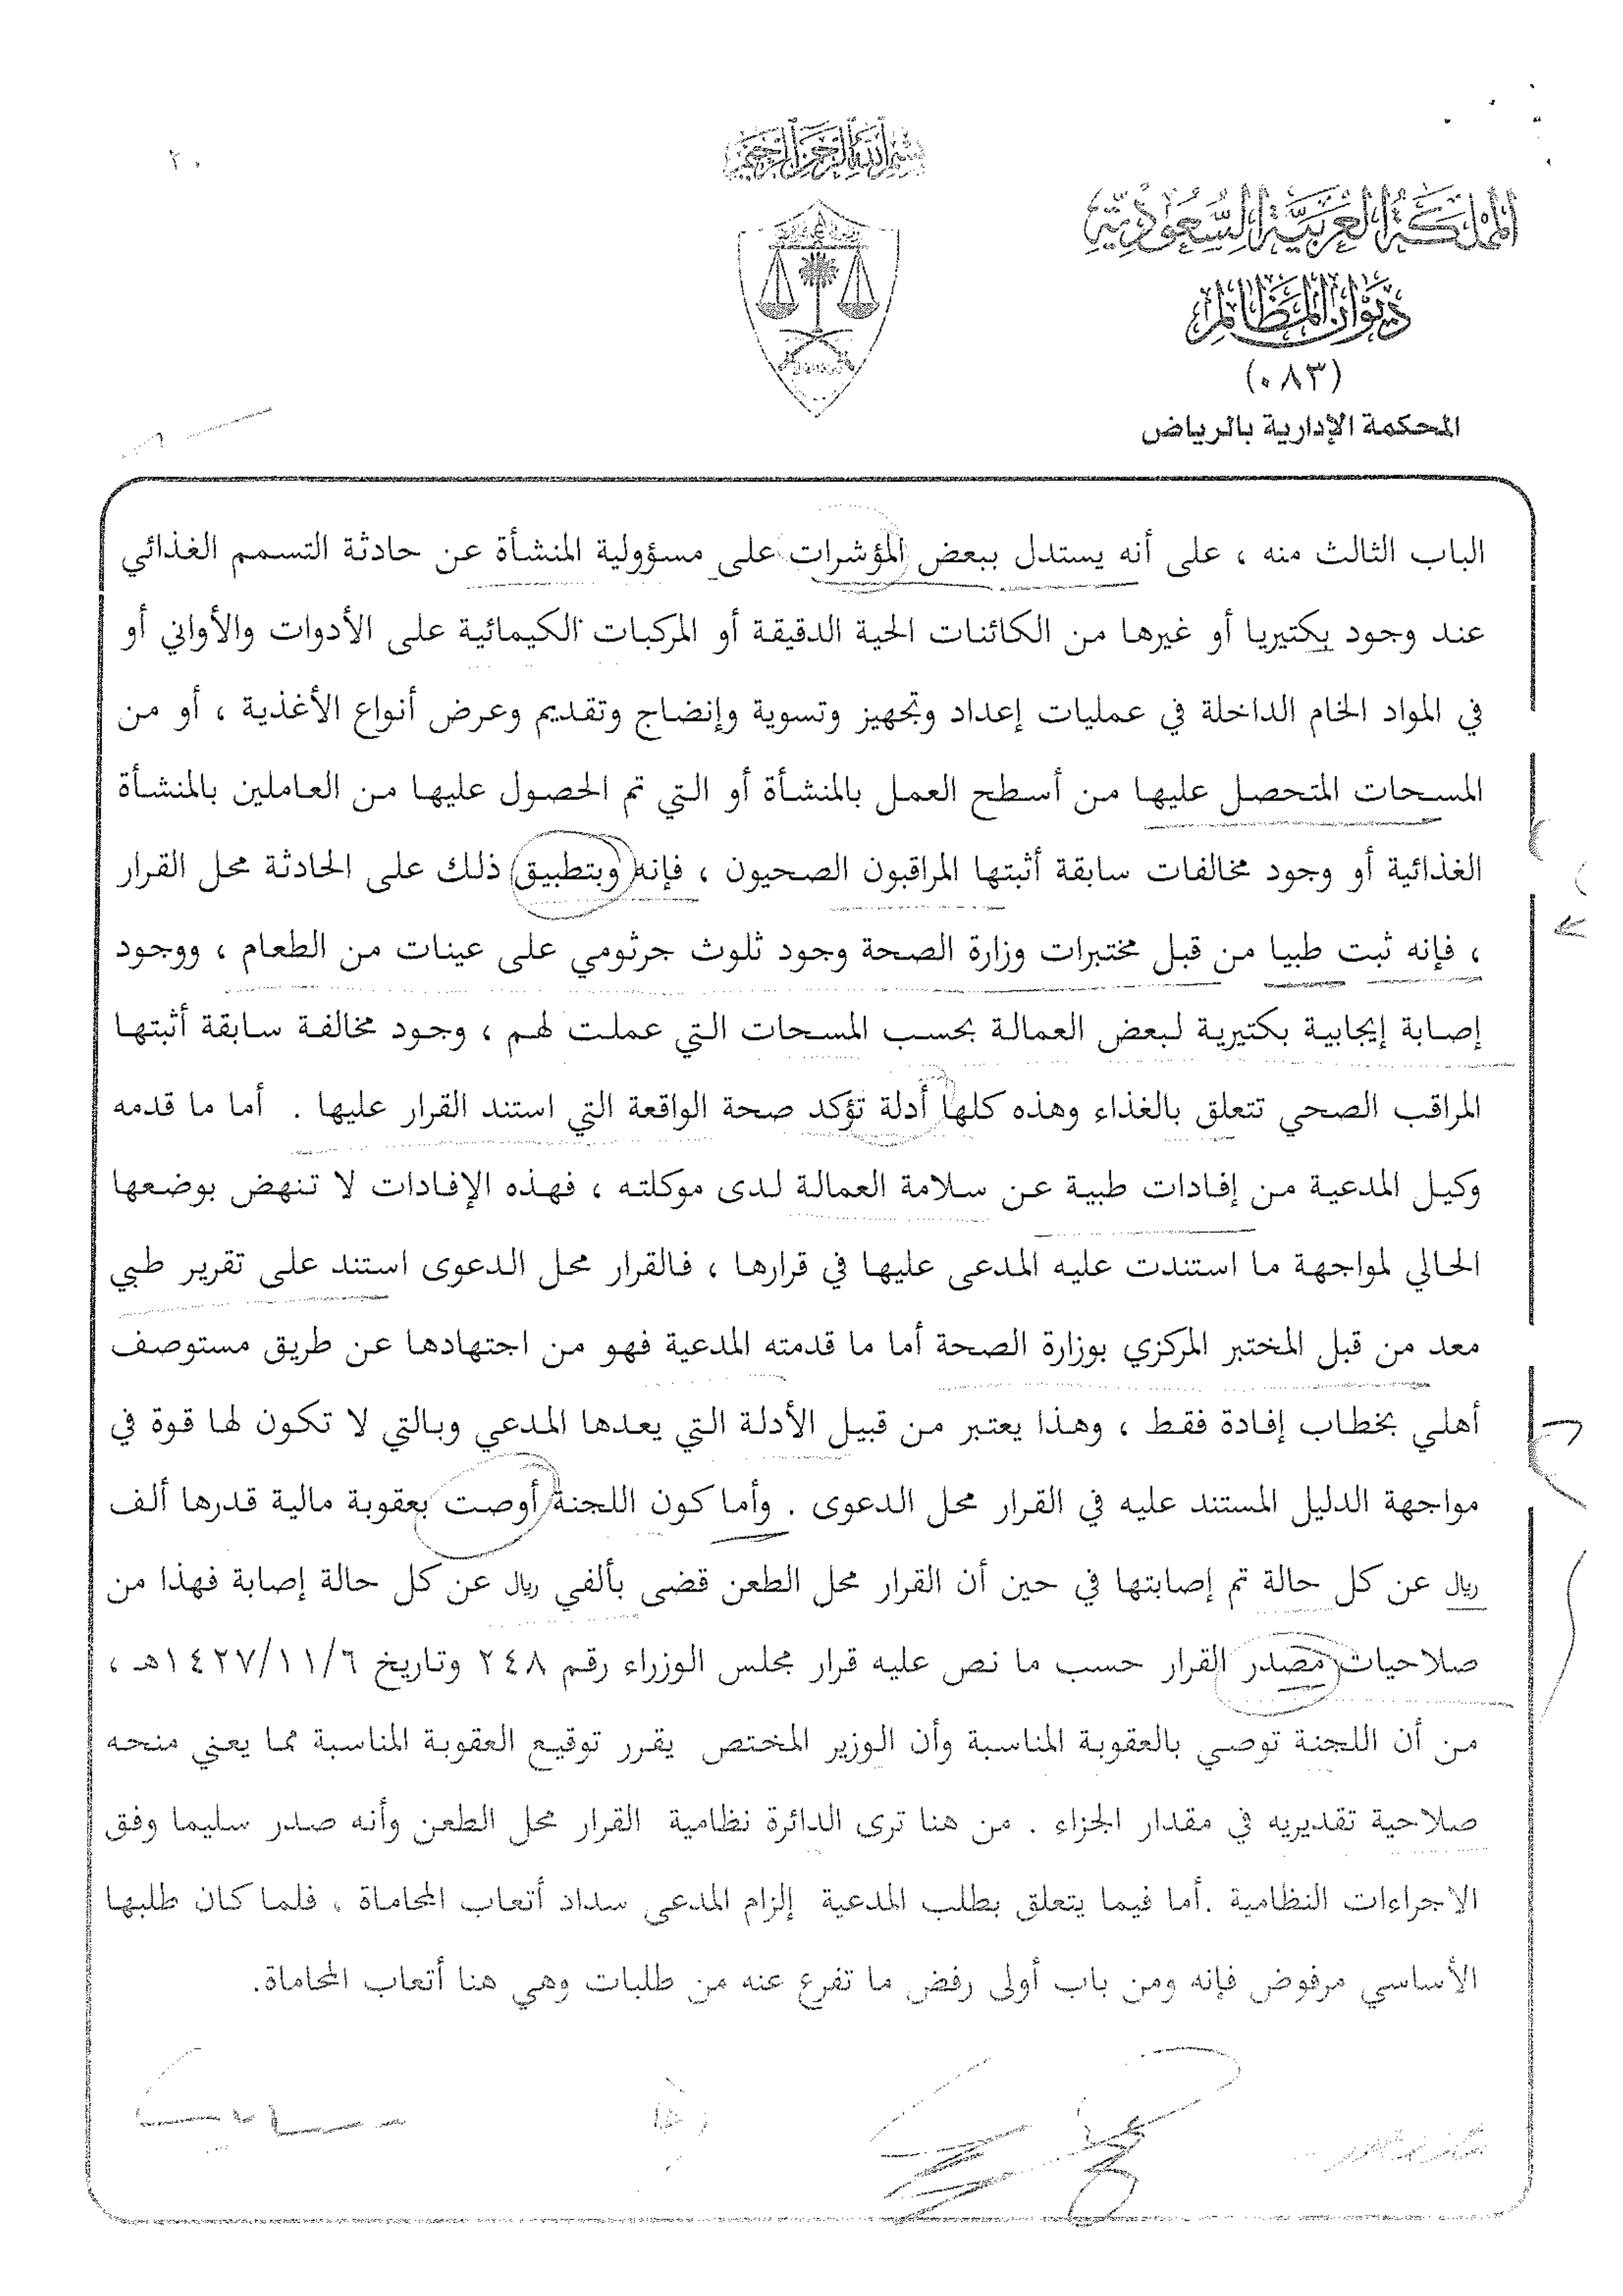 بسم الله الرحمن الرحيم
٢٠
المملكة العربية السعودية
ديوان المظالم
(٠٨٣)
المحكمة الإدارية بالرياض
الباب الثالث منه ، على أنه يستدل ببعض المؤشرات على مسؤولية المنشأة عن حادثة التسمم الغذائي
عند وجود بكتيريا أو غيرها من الكائنات الحية الدقيقة أو المركبات الكيمائية على الأدوات والأواني أو
في المواد الخام الداخلة في عمليات إعداد وتجهيز وتسوية وإنضاج وتقديم وعرض أنواع الأغذية ، أو من
المسحات المتحصل عليها من أسطح العمل بالمنشأة أو التي تم الحصول عليها من العاملين بالمنشأة
الغذائية أو وجود مخالفات سابقة أثبتها المراقبون الصحيون ، فإنه وبتطبيق ذلك على الحادثة محل القرار
، فإنه ثبت طبيا من قبل مختبرات وزارة الصحة وجود تلوث جرثومي على عينات من الطعام ، ووجود
إصابة إيجابية بكتيرية لبعض العمالة بحسب المسحات التي عملت لهم ، وجود مخالفة سابقة أثبتها
المراقب الصحي تتعلق بالغذاء وهذه كلها أدلة تؤكد صحة الواقعة التي استند القرار عليها . أما ما قدمه
وكيل المدعية من إفادات طبية عن سلامة العمالة لدى موكلته ، فهذه الإفادات لا تنهض بوضعها
الحالي لمواجهة ما استندت عليه المدعى عليها في قرارها ، فالقرار محل الدعوى استند على تقرير طبي
معد من قبل المختبر المركزي بوزارة الصحة أما ما قدمته المدعية فهو من اجتهادها عن طريق مستوصف
أهلي بخطاب إفادة فقط ، وهذا يعتبر من قبيل الأدلة التي يعدها المدعي وبالتي لا تكون لها قوة في
مواجهة الدليل المستند عليه في القرار محل الدعوى . وأما كون اللجنة أوصت بعقوبة مالية قدرها ألف
ريال عن كل حالة تم إصابتها في حين أن القرار محل الطعن قضى بألفي ريال عن كل حالة إصابة فهذا من
صلاحيات مصدر القرار حسب ما نص عليه قرار مجلس الوزراء رقم ٢٤٨ وتاريخ ١٤٢٧/١١/٦هـ ،
من أن اللجنة توصي بالعقوبة المناسبة وأن الوزير المختص يقرر توقيع العقوبة المناسبة مما يعني منحه
صلاحية تقديريه في مقدار الجزاء . من هنا ترى الدائرة نظامية القرار محل الطعن وأنه صدر سليما وفق
الاجراءات النظامية .أما فيما يتعلق بطلب المدعية إلزام المدعى سداد أتعاب المحاماة ، فلما كان طلبها
الأساسي مرفوض فإنه ومن باب أولى رفض ما تفرع عنه من طلبات وهي هنا أتعاب المحاماة.